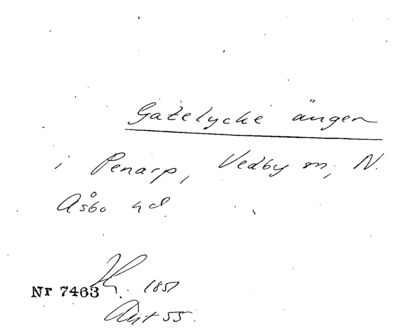 Gatelycke ängen
i Penarp, Vedby sn, N.
Åsbo hd.
Nr 7463